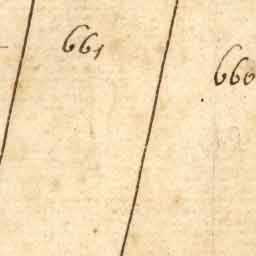 661
660